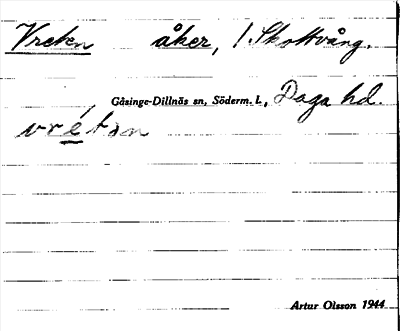 Vreten åker, 1 Skottvång.
Gåsinge-Dillnäs sn, Söderm. l., Daga hd.
vrétən
Artur Olsson 1944